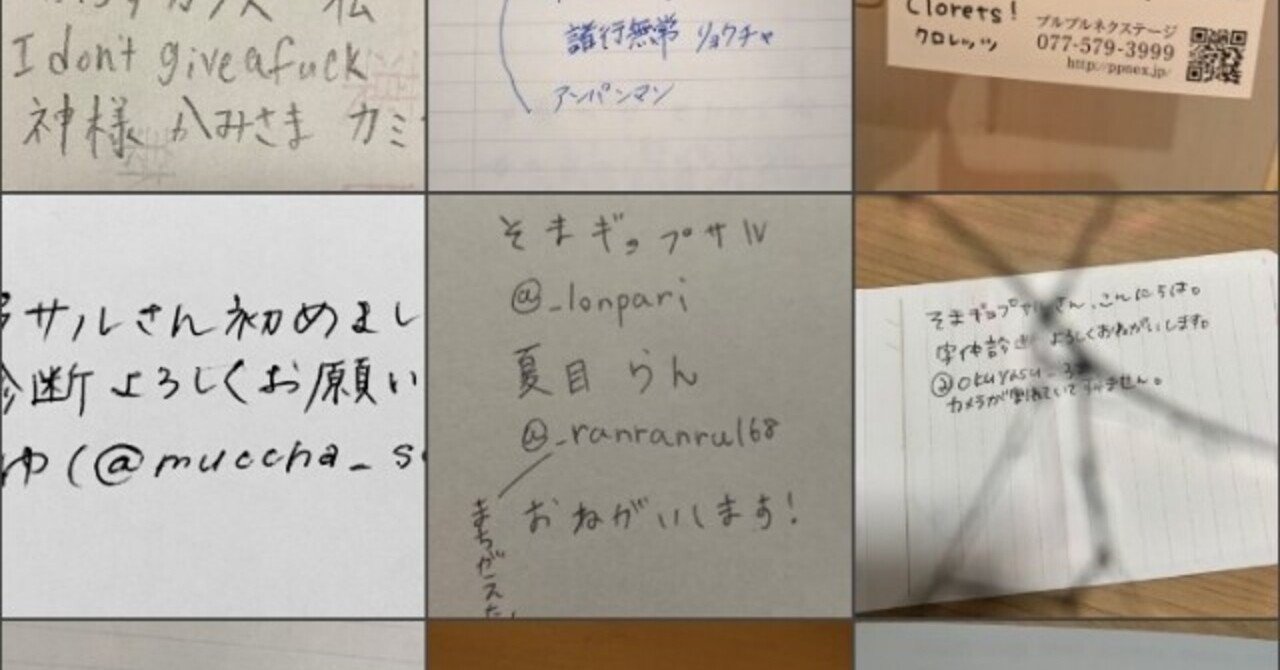 私
I don't give a fuck
神様 かみさま カミ
諸行無常 リョクチャ
アンパンマン
Clorets!
クロレッツ
プルプルネクステージ
077-579-3999
http://ppnex.jp/
サルさん初めまし
診断よろしくお願い
ゆ(@muccha_s
そまギョプサル
@_lonpari
夏目らん
@_ranranru168
おねがいします!
まちがえた、
そまギョプサルさん、こんにちは。
字体診断 よろしくおねがいします。
@okuyasu_
カメラが割れていてすみません。